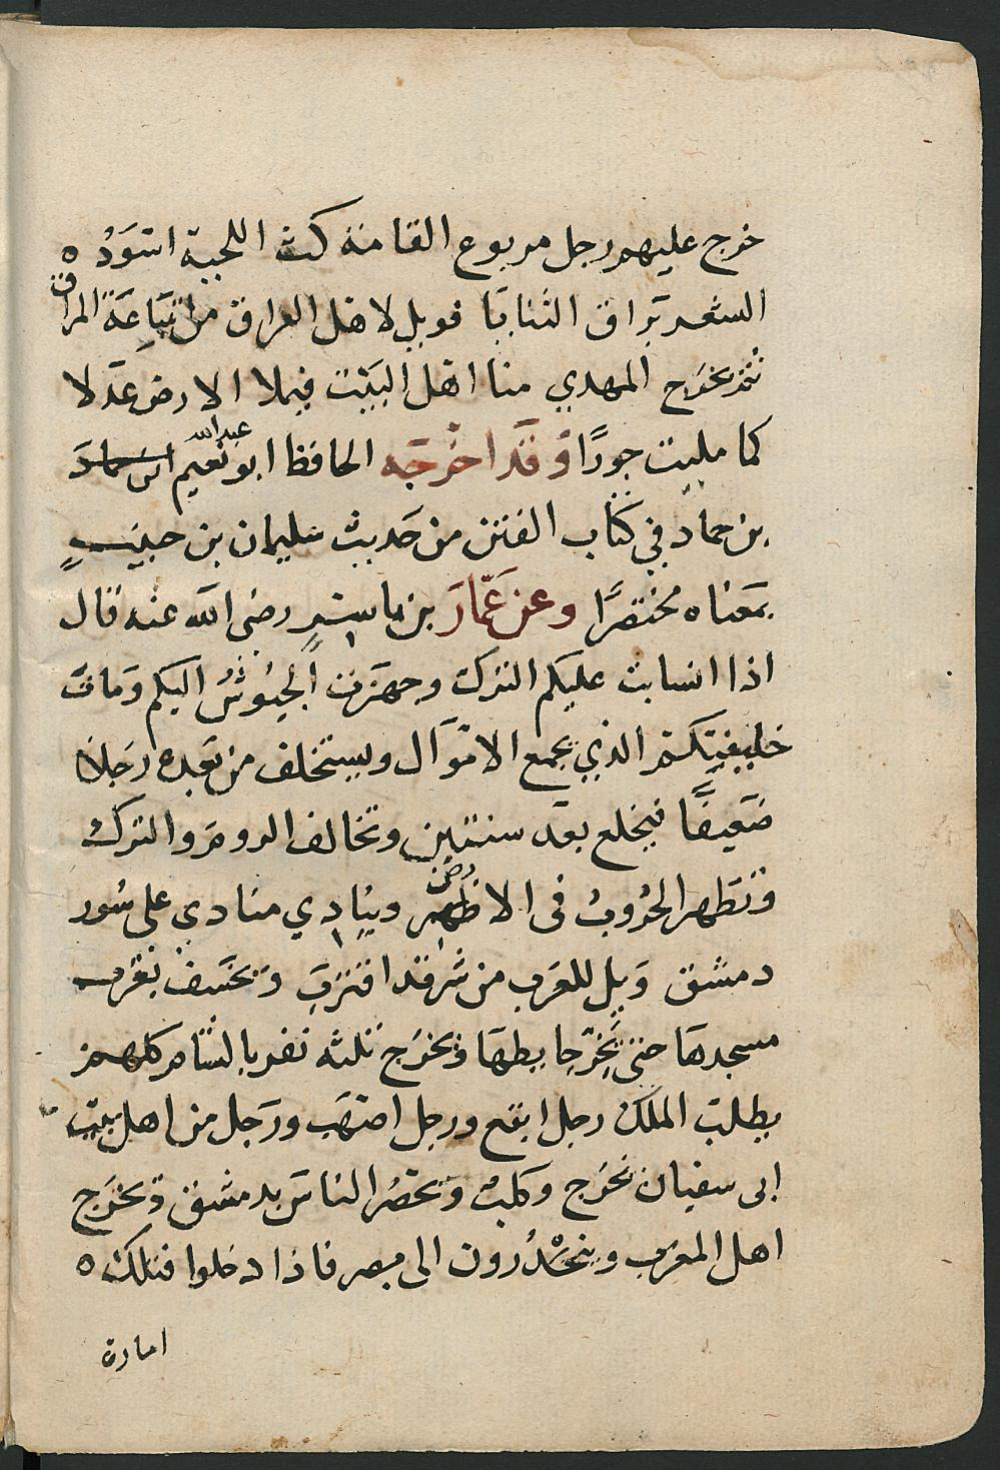 خرج عليهم رجل مربوع القامة كث اللحية اسود ه
الشعر براق الثنايا فويل لاهل العراق من اتباعه المراق
ثم يخرج المهدي منا اهل البيت فيملا الارض عدلا
كما مليت جورًا وقد اخرجه الحافظ ابو عبدالله نعيم
بن حماد في كتاب الفتن من حديث سليمان بن حبيب
بمعناه مختصرًا وعن عمار بن ياسر رضى الله عنه قال
اذا انسابت عليكم الترك وجهزت الجيوش اليكم ومات
خليفتكم الذي يجمع الاموال ويستخلف من بعده رجلا
ضعيفًا فيخلع بعد سنتين وتخالف الروم والترك
وتظهر الحروب فى الارض وينادي منادي على سور
دمشق ويل للعرب من شر قد اقترب ويخسف بغرب
مسجدها حتى يخر حايطها ويخرج ثلثه نفر بالشام كلهم
يطلب الملك رجل ابقع ورجل اصهب ورجل من اهل بيت
ابى سفيان يخرج وكلب ويحصر الناس بدمشق ويخرج
اهل المغرب وينحدرون الى مصر فاذا دخلوا فتلك ه
امارة